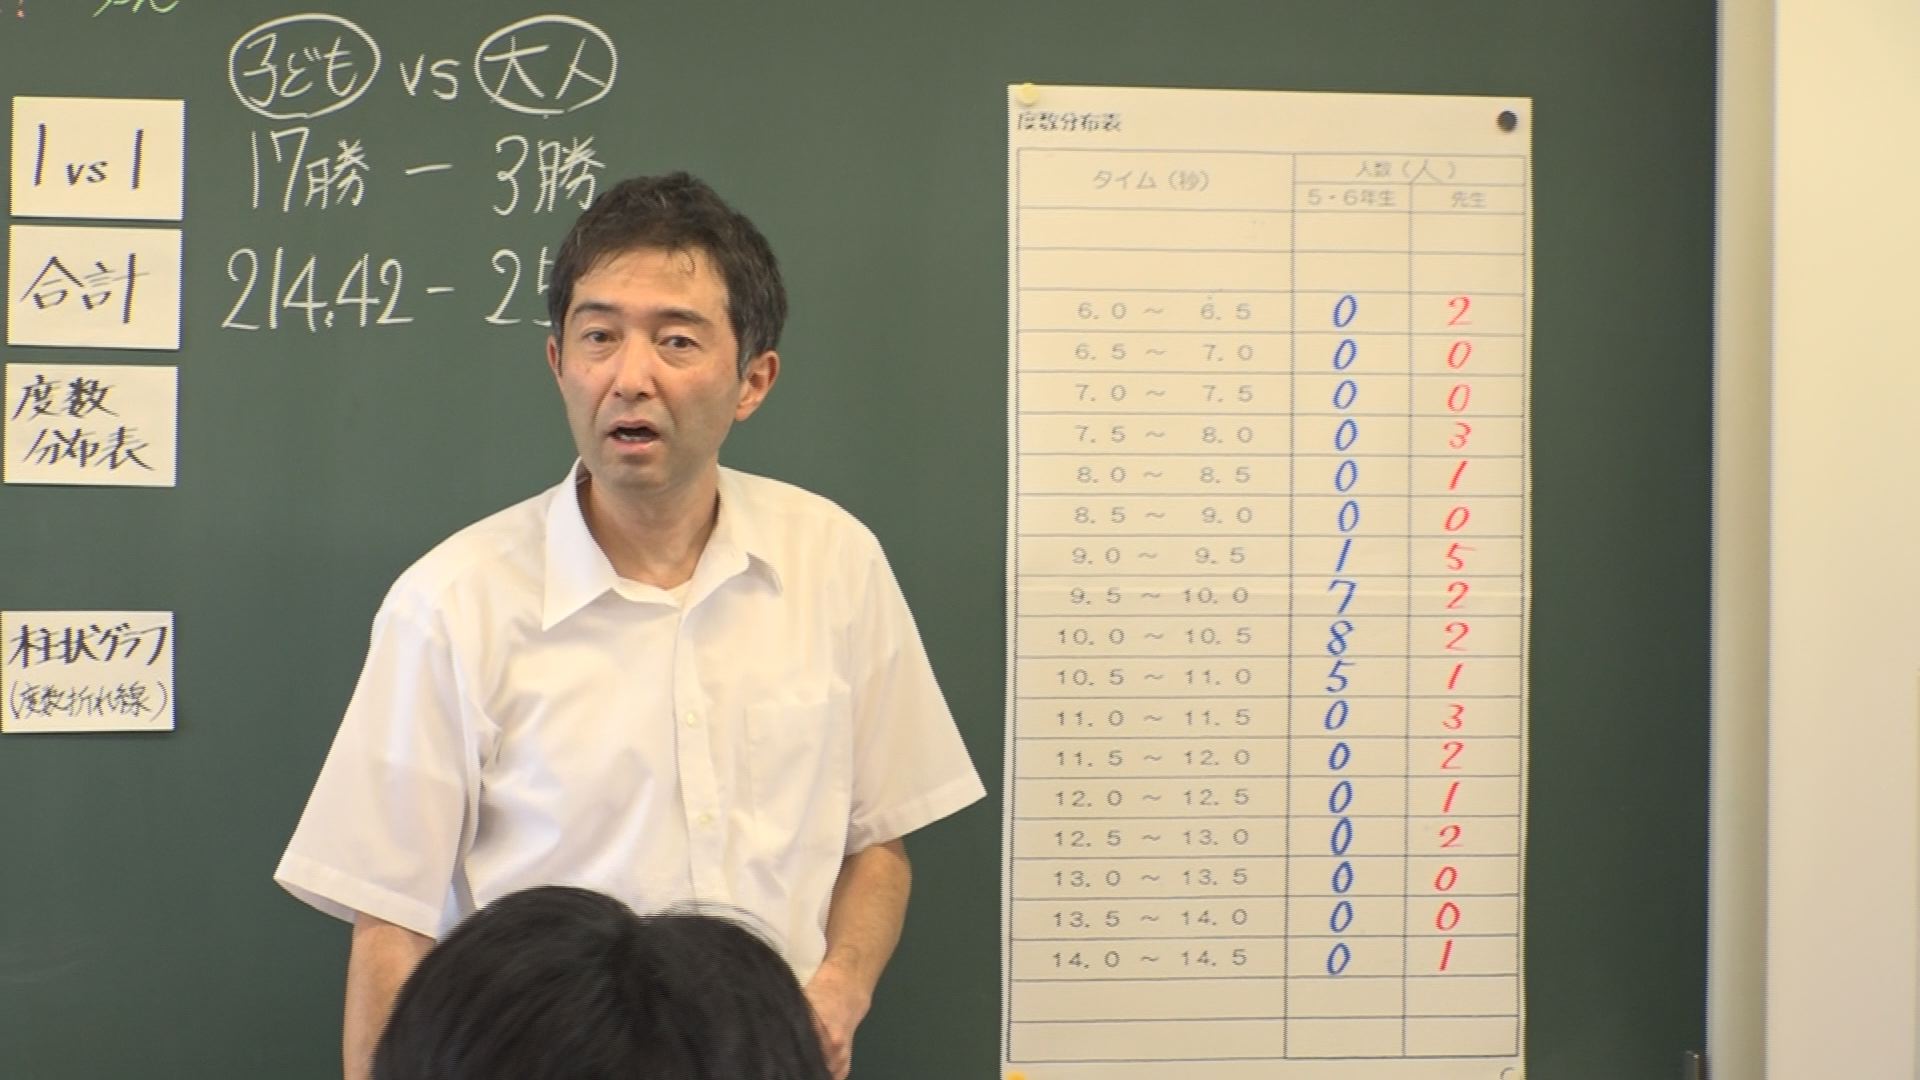 子ども vs 大人
1 vs 1
17勝 - 3勝
合計
214.42 - 25
度数
分布表
柱状グラフ
(度数折れ線)
度数分布表
タイム(秒) 人数(人)
5・6年生 先生
6.0 ~ 6.5 0 2
6.5 ~ 7.0 0 0
7.0 ~ 7.5 0 0
7.5 ~ 8.0 0 3
8.0 ~ 8.5 0 1
8.5 ~ 9.0 0 0
9.0 ~ 9.5 1 5
9.5 ~ 10.0 7 2
10.0 ~ 10.5 8 2
10.5 ~ 11.0 5 1
11.0 ~ 11.5 0 3
11.5 ~ 12.0 0 2
12.0 ~ 12.5 0 1
12.5 ~ 13.0 0 2
13.0 ~ 13.5 0 0
13.5 ~ 14.0 0 0
14.0 ~ 14.5 0 1